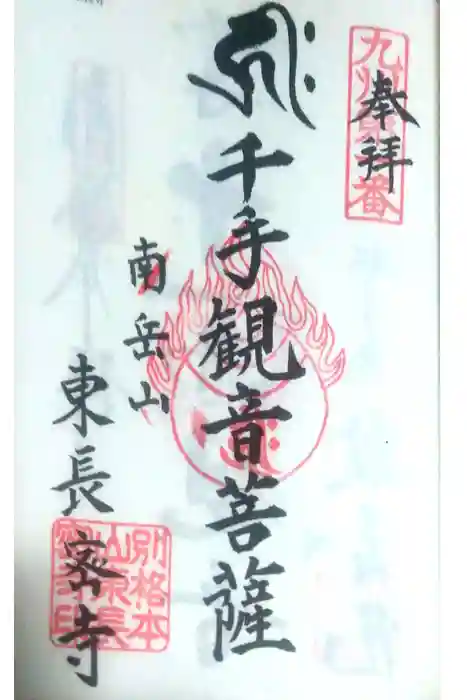 奉拝
九州第一番
千手観音菩薩
南岳山
東長密寺
別格本
山東長
密寺印